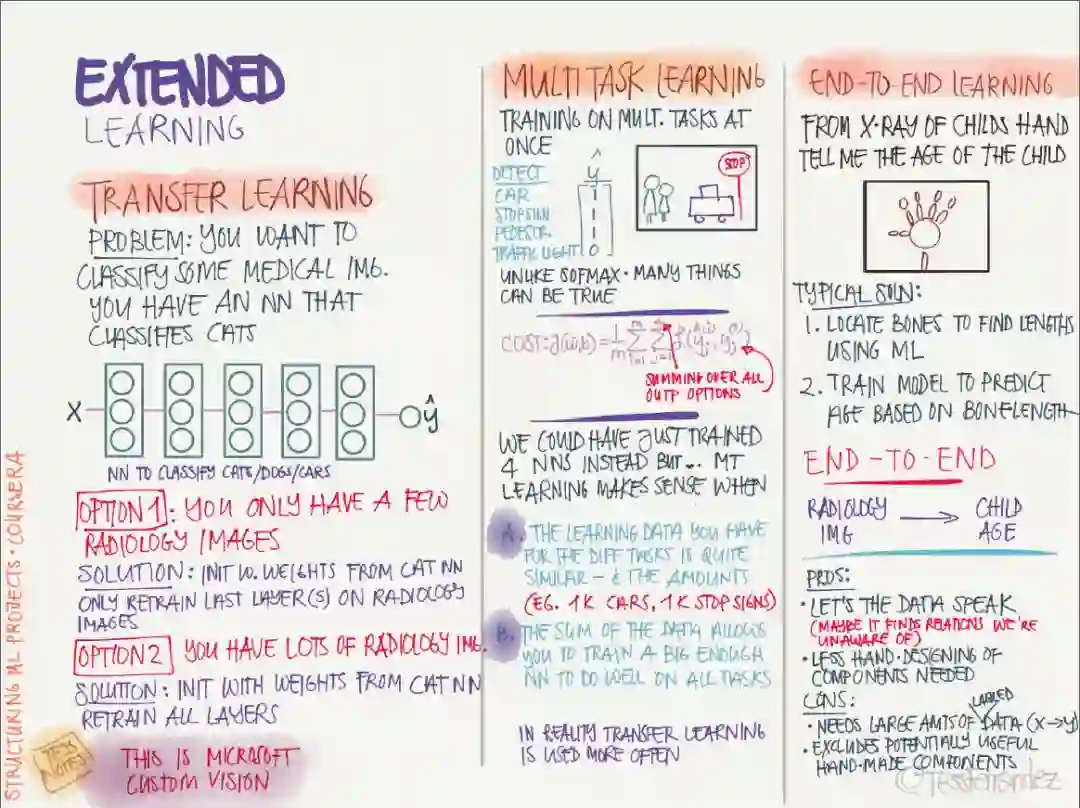 EXTENDED
LEARNING
TRANSFER LEARNING
PROBLEM: YOU WANT TO
CLASSIFY SOME MEDICAL IMG.
YOU HAVE AN NN THAT
CLASSIFIES CATS
X
ŷ
NN TO CLASSIFY CATS/DOGS/CARS
OPTION 1: YOU ONLY HAVE A FEW
RADIOLOGY IMAGES
SOLUTION: INIT W. WEIGHTS FROM CAT NN
ONLY RETRAIN LAST LAYER(S) ON RADIOLOGY
IMAGES
OPTION 2 YOU HAVE LOTS OF RADIOLOGY IMG.
SOLUTION: INIT WITH WEIGHTS FROM CAT NN
RETRAIN ALL LAYERS
THIS IS MICROSOFT
CUSTOM VISION
STRUCTURING ML PROJECTS · COURSERA
TESS
NOTES
MULTI TASK LEARNING
TRAINING ON MULT. TASKS AT
ONCE
DETECT ŷ
CAR 1
STOPSIGN 1
PEDESTR. 1
TRAFFIC LIGHT 0
STOP
UNLIKE SOFMAX · MANY THINGS
CAN BE TRUE
COST: J(w,b) =
SUMMING OVER ALL
OUTP OPTIONS
WE COULD HAVE JUST TRAINED
4 NNS INSTEAD BUT... MT
LEARNING MAKES SENSE WHEN
A. THE LEARNING DATA YOU HAVE
FOR THE DIFF TASKS IS QUITE
SIMILAR - & THE AMOUNTS
(EG. 1K CARS, 1K STOP SIGNS)
B. THE SUM OF THE DATA ALLOWS
YOU TO TRAIN A BIG ENOUGH
NN TO DO WELL ON ALL TASKS
IN REALITY TRANSFER LEARNING
IS USED MORE OFTEN
END-TO-END LEARNING
FROM X-RAY OF CHILDS HAND
TELL ME THE AGE OF THE CHILD
TYPICAL SOLN:
1. LOCATE BONES TO FIND LENGTHS
USING ML
2. TRAIN MODEL TO PREDICT
AGE BASED ON BONELENGTH
END-TO-END
RADIOLOGY → CHILD
IMG AGE
PROS:
· LET'S THE DATA SPEAK
(MAYBE IT FINDS RELATIONS WE'RE
UNAWARE OF)
· LESS HAND-DESIGNING OF
COMPONENTS NEEDED
CONS:
LABLED
· NEEDS LARGE AMTS OF DATA (X→Y)
· EXCLUDES POTENTIALLY USEFUL
HAND-MADE COMPONENTS
@TessFerrandez